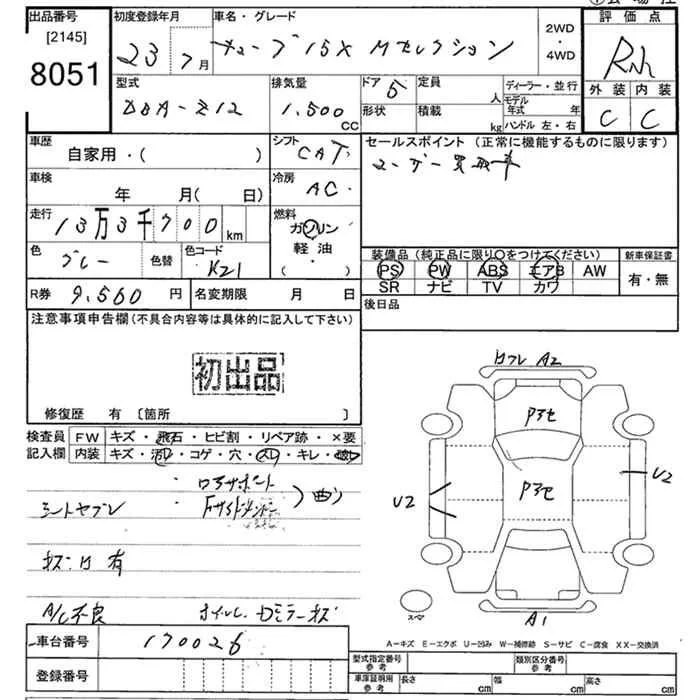 出品番号 初度登録年月 車名・グレード 2WD 評価点
[2145] 23 7月 キューブ 15X Mセレクション ・
8051 4WD
型式 排気量 ドア 5 定員 人 ディーラー・並行 外装 内装
DBA-Z12 1,500 CC 形状 積載 kg モデル年式 年 C C
ハンドル 左・右
車歴 シフト CAT セールスポイント(正常に機能するものに限ります)
自家用・( )
車検 年 月( 日) 冷房 AC
走行 13万3千700 km 燃料 ガソリン
軽油
( ・ )
色 グレー 色替 色コード K21
装備品(純正品に限り○をつけてください) 新車保証書
PS PW ABS エアB AW 有・無
SR ナビ TV カワ
R券 9,560 円 名変期限 月 日 後日品
注意事項申告欄(不具合内容等は具体的に記入して下さい)
初出品
修復歴 有 〔箇所 〕
検査員 FW キズ・飛石・ヒビ割・リペア跡・×要
記入欄 内装 キズ・汚レ・コゲ・穴・スレ・キレ・
A2
U2
U2
A1
キズ・凹 有
A/C不良
スペア
A-キズ E-エクボ U-凹み W-補修跡 S-サビ C-腐食 XX-交換済
車台番号 170026
登録番号
型式指定番号 参考 類別区分番号 参考
車庫証明用 参考 長さ cm 幅 cm 高さ cm